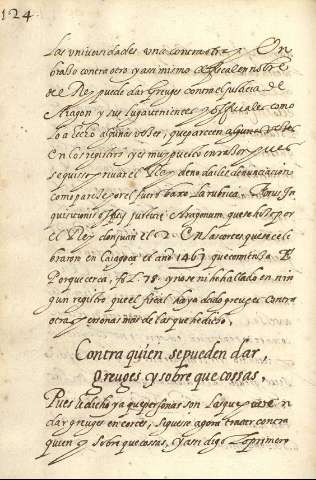 124
Las universidades una contra otra y Un
braſso contra otro, y asi mismo
del Rey puede dar Greuges contra el Justicia de
Aragon y sus lugartenientes y officiales como
lo a hecho algunas vezes, que parecen
En los registros, y es muy puesto en razon pues
se quiso privar el Rey de no dalle denunciacion
como parece por el fuero baxo la rubrica, forus In
quisitionis officij Justicie Aragonum que se hizo por
el Rey don Juan el 2. En las cortes que se cele
braron en Caragoça el año 1467 que comiença
Porque cerca, fo L. 78. y no se ni he hallado en nin
gun registro que el fiscal haya dado greuges contra
otras personas mas de las que he dicho,
Contra quien se pueden dar,
greuges, y sobre que cossas,
Pues he dicho ya que personas son Las que
dar greuges en cortes, siguese agora tratar contra
quien y sobre que cossas, y asi digo Lo primero